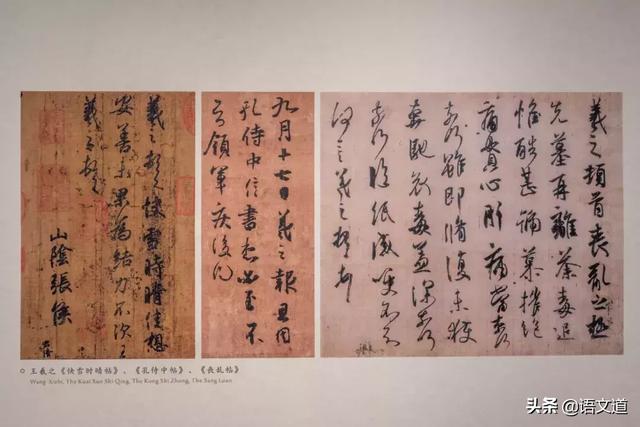 羲之頓首快雪時晴佳想
安善未果為結力不次王
羲之頓首
山陰張侯
九月十七日羲之報且因
孔侍中信書想必至不
知領軍疾後問
羲之頓首喪亂之極
先墓再離荼毒追
惟酷甚號慕摧絕
痛貫心肝痛當奈何
奈何雖即脩復未獲
奔馳哀毒益深奈何
奈何臨紙感哽不知
何言羲之頓首頓首
王羲之《快雪时晴帖》、《孔侍中帖》、《丧乱帖》
Wang Xizhi, The Kuai Xue Shi Qing, The Kong Shi Zhong, The Sang Luan
头条 @语文道